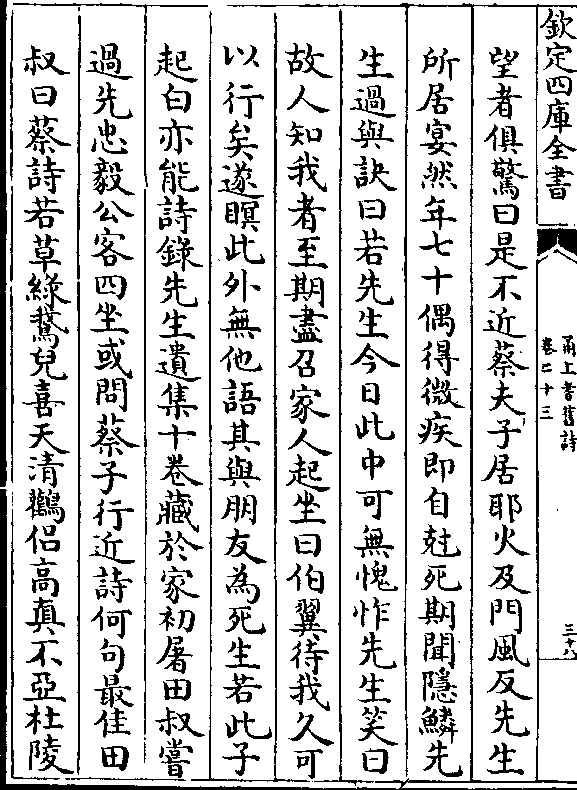 欽定四庫全書
甬上耆舊詩
卷二十三
三十八
望者俱驚曰是不近蔡夫子居耶火及門風反先生
所居宴然年七十偶得微疾即自尅死期聞隱鱗先
生過與訣曰若先生今日此中可無愧怍先生笑曰
故人知我者至期盡召家人起坐曰伯翼待我久可
以行矣遂瞑此外無他語其與朋友為死生若此子
起白亦能詩錄先生遺集十卷藏於家初屠田叔嘗
過先忠毅公客四坐或問蔡子行近詩何句最佳田
叔曰蔡詩若草綠鵞兒喜天清鸛侣高真不亞杜陵